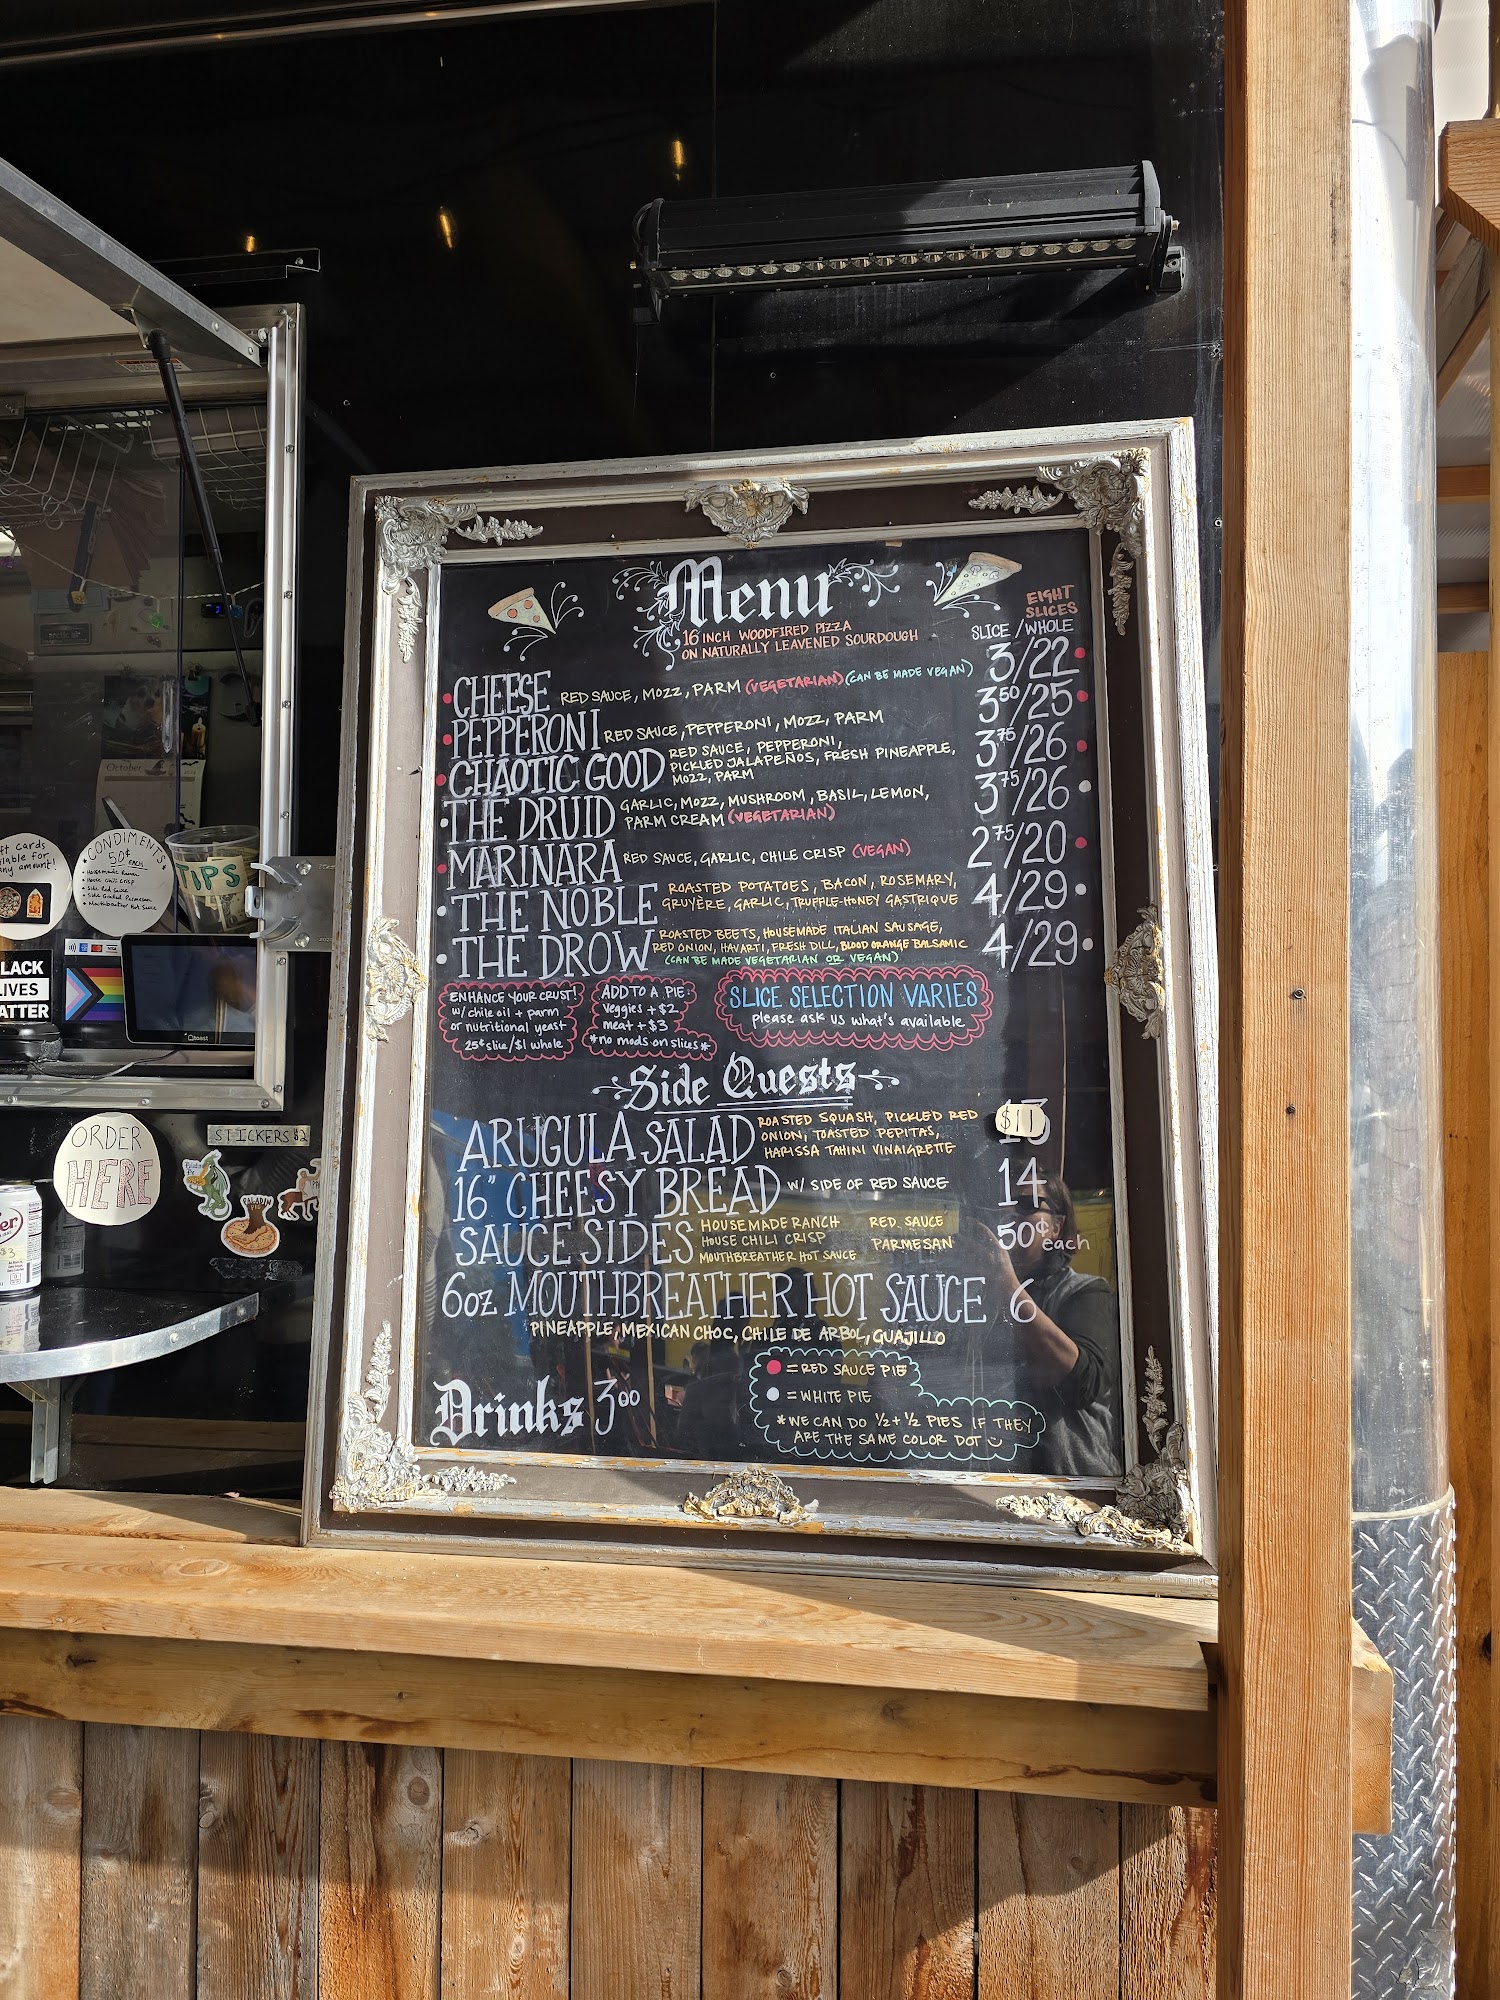 Menu
16 INCH WOODFIRED PIZZA
ON NATURALLY LEAVENED SOURDOUGH
EIGHT
SLICES
SLICE / WHOLE
CHEESE RED SAUCE, MOZZ, PARM (VEGETARIAN) (CAN BE MADE VEGAN) 3/22
PEPPERONI RED SAUCE, PEPPERONI, MOZZ, PARM 3 50/25
CHAOTIC GOOD RED SAUCE, PEPPERONI, 3 75/26
PICKLED JALAPEÑOS, FRESH PINEAPPLE,
MOZZ, PARM
THE DRUID GARLIC, MOZZ, MUSHROOM, BASIL, LEMON, 3 75/26
PARM CREAM (VEGETARIAN)
MARINARA RED SAUCE, GARLIC, CHILE CRISP (VEGAN) 2 75/20
THE NOBLE ROASTED POTATOES, BACON, ROSEMARY, 4/29
GRUYÈRE, GARLIC, TRUFFLE-HONEY GASTRIQUE
THE DROW ROASTED BEETS, HOUSEMADE ITALIAN SAUSAGE, 4/29
RED ONION, HAVARTI, FRESH DILL, BLOOD ORANGE BALSAMIC
(CAN BE MADE VEGETARIAN OR VEGAN)
ENHANCE YOUR CRUST!
w/ chile oil + parm
or nutritional yeast
25¢ slice/$1 whole
ADD TO A PIE:
veggies + $2
meat + $3
*no mods on slices*
SLICE SELECTION VARIES
please ask us what's available
Side Quests
ARUGULA SALAD ROASTED SQUASH, PICKLED RED $11
ONION, TOASTED PEPITAS,
HARISSA TAHINI VINAIGRETTE
16" CHEESY BREAD W/ SIDE OF RED SAUCE 14
SAUCE SIDES HOUSEMADE RANCH RED SAUCE 50¢ each
HOUSE CHILI CRISP PARMESAN
MOUTHBREATHER HOT SAUCE
6oz MOUTHBREATHER HOT SAUCE 6
PINEAPPLE, MEXICAN CHOC, CHILE DE ARBOL, GUAJILLO
Drinks 3 00
= RED SAUCE PIE
= WHITE PIE
* WE CAN DO ½ + ½ PIES IF THEY
ARE THE SAME COLOR DOT
October
CONDIMENTS
50¢
EACH
Housemade Ranch
House Chili Crisp
Side Red Sauce
Side Grated Parmesan
Mouthbreather Hot Sauce
any amount!
TIPS
LACK
IVES
ATTER
toast
ORDER
HERE
STICKERS $2
PALADIN
PIE